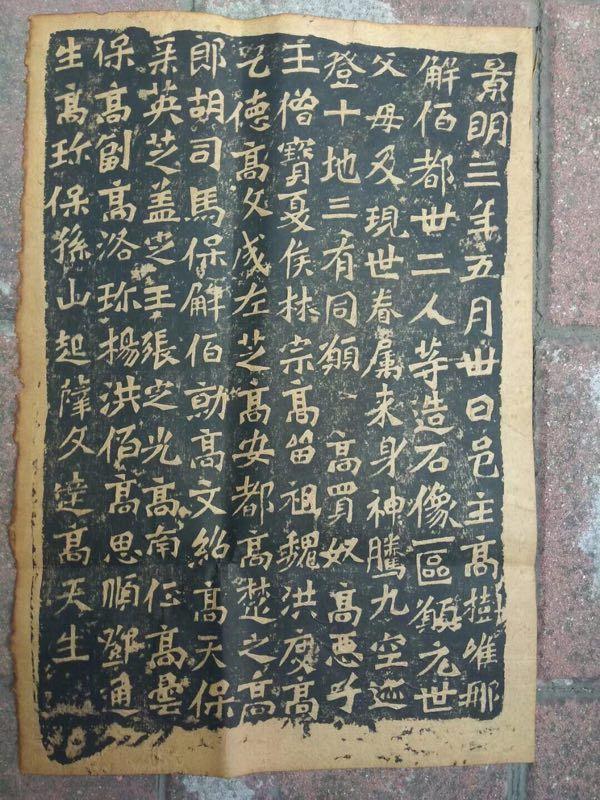 景明三年五月卅日邑主高樹唯那
解佰都卅二人等造石像一區願元世
父母及現世眷属来身神騰九空迹
登十地三有同願、高買奴高惡子
主僧寶夏侯林宗高留祖魏洪度高
乞德高文成左芝高安都高楚之高
郎胡司馬保解佰勍高文紹高天保
英芝盖定王張定光高南征高雲
保高副高洛珎楊洪佰高思順鄧通
生高珎保孫山起薩文達高天生